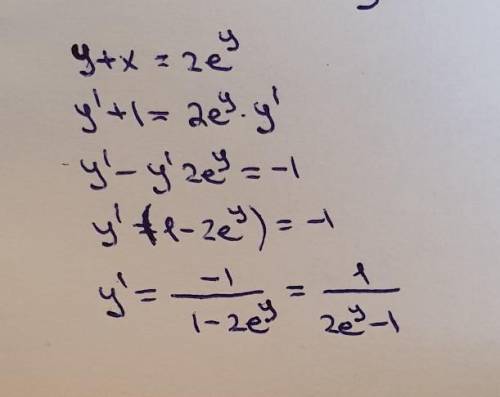 y+x = 2e^y
y'+1 = 2e^y · y'
y' - y' 2e^y = -1
y' (1 - 2e^y) = -1
y' = -1 / (1 - 2e^y) = 1 / (2e^y - 1)